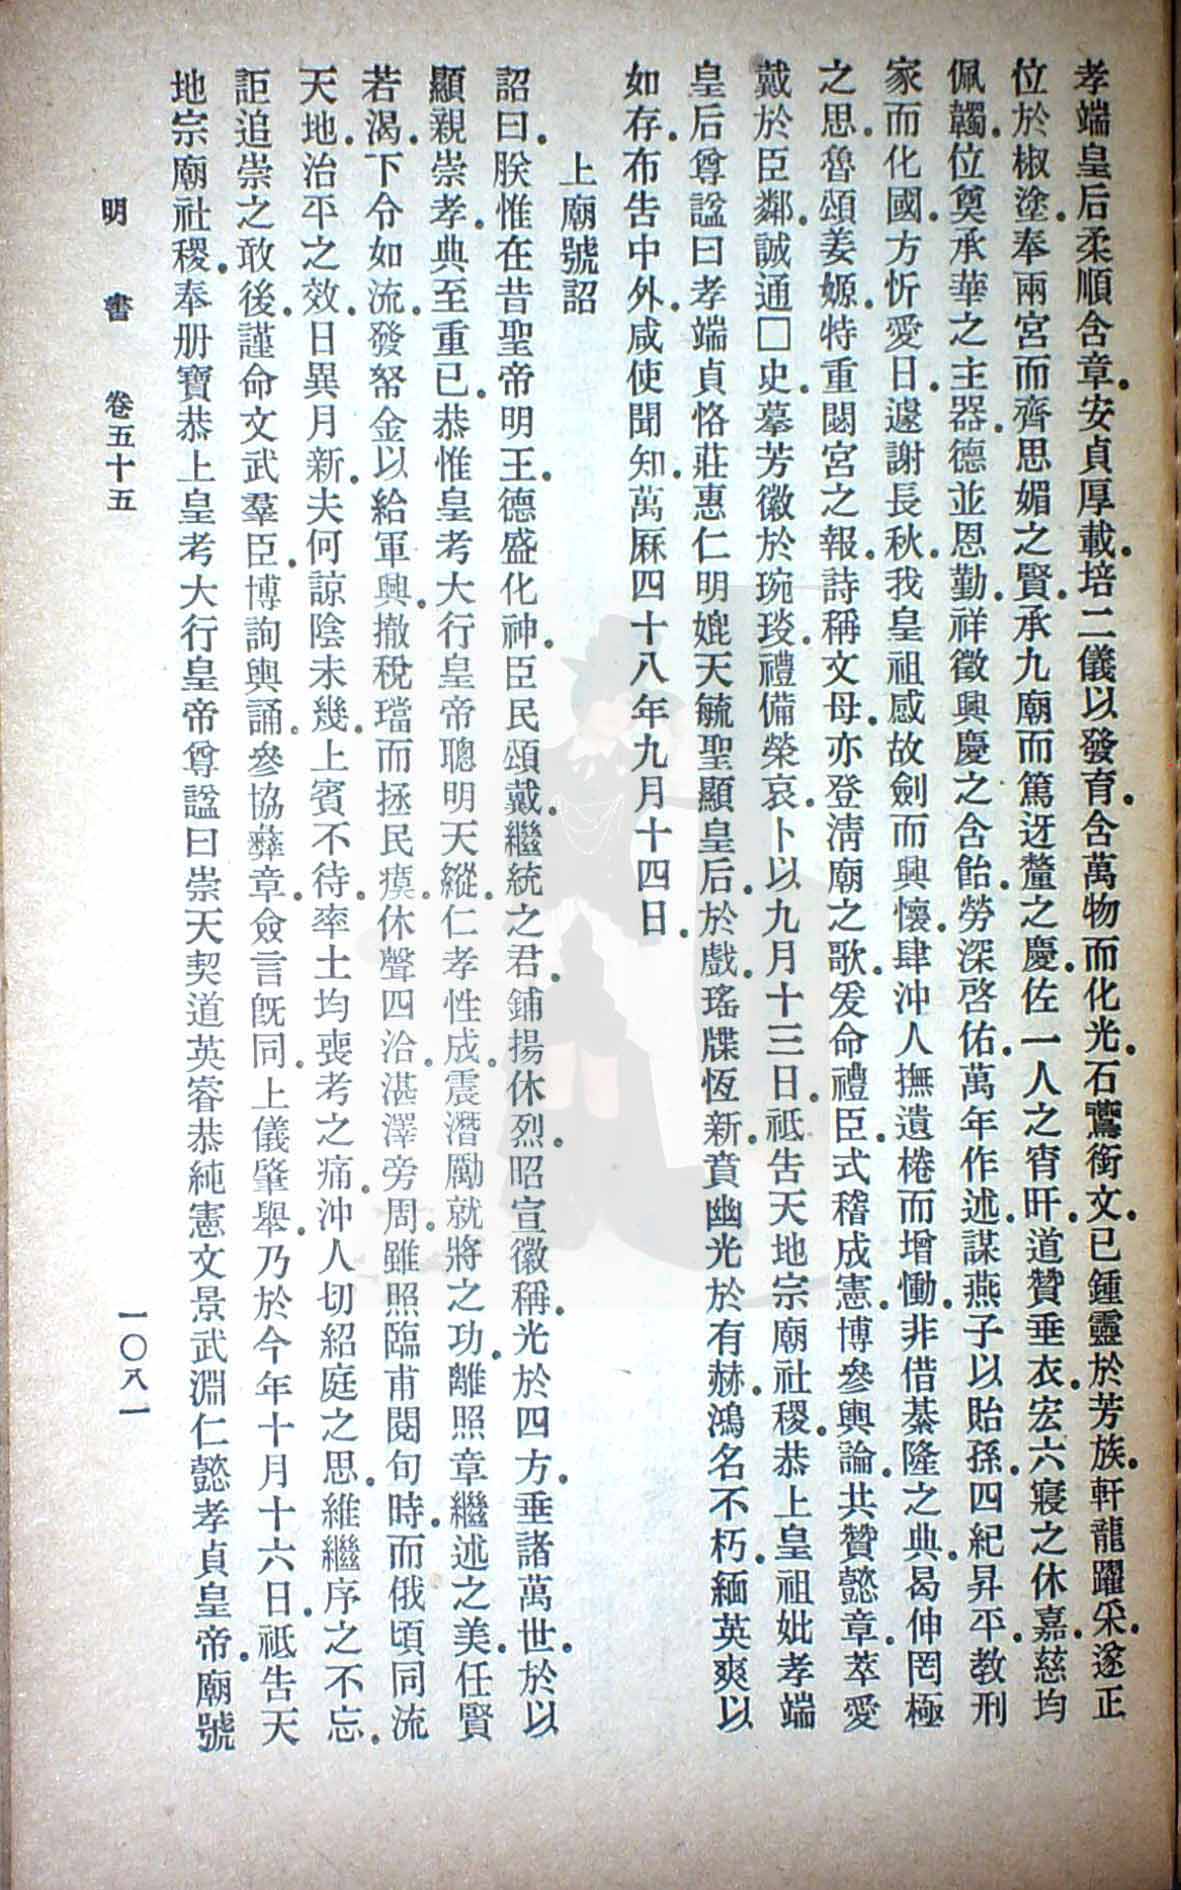 孝端皇后柔順含章。安貞厚載。培二儀以發育。含萬物而化光。石鷰銜文。已鍾靈於芳族。軒龍躍采。遂正
位於椒塗。奉兩宮而齊思媚之賢。承九廟而篤迓釐之慶。佐一人之宵旰。道贊垂衣。宏六寢之休嘉。慈均
佩韣。位奠承華之主器。德並恩勤。祥徵興慶之含飴。勞深啓佑。萬年作述。謀燕子以貽孫。四紀昇平。教刑
家而化國。方忻愛日。遽謝長秋。我皇祖感故劍而興懷。肆沖人撫遺棬而增慟。非借綦隆之典。曷伸罔極
之思。魯頌姜嫄。特重閟宮之報。詩稱文母。亦登清廟之歌。爰命禮臣。式稽成憲。博參輿論。共贊懿章。萃愛
戴於臣鄰。誠通□史。摹芳徽於琬琰。禮備榮哀。卜以九月十三日。祗告天地宗廟社稷。恭上皇祖妣孝端
皇后尊諡曰孝端貞恪莊惠仁明媲天毓聖顯皇后。於戲。瑤牒恆新。賁幽光於有赫。鴻名不朽。緬英爽以
如存。布告中外。咸使聞知。萬厤四十八年九月十四日。
上廟號詔
詔曰。朕惟在昔聖帝明王。德盛化神。臣民頌戴。繼統之君。鋪揚休烈。昭宣徽稱。光於四方。垂諸萬世。於以
顯親崇孝。典至重已。恭惟皇考大行皇帝聰明天縱。仁孝性成。震潛勵就將之功。離照章繼述之美。任賢
若渴。下令如流。發帑金以給軍興。撤稅璫而拯民瘼。休聲四洽。湛澤旁周。雖照臨甫閱旬時。而俄頃同流
天地。治平之效。日異月新。夫何諒陰未幾。上賓不待。率土均喪考之痛。沖人切紹庭之思。維繼序之不忘。
詎追崇之敢後。謹命文武羣臣。博詢輿誦。參協彝章。僉言旣同。上儀肇舉。乃於今年十月十六日。祗告天
地宗廟社稷。奉册寶恭上皇考大行皇帝尊諡曰崇天契道英睿恭純憲文景武淵仁懿孝貞皇帝。廟號
明書 卷五十五 一〇八一